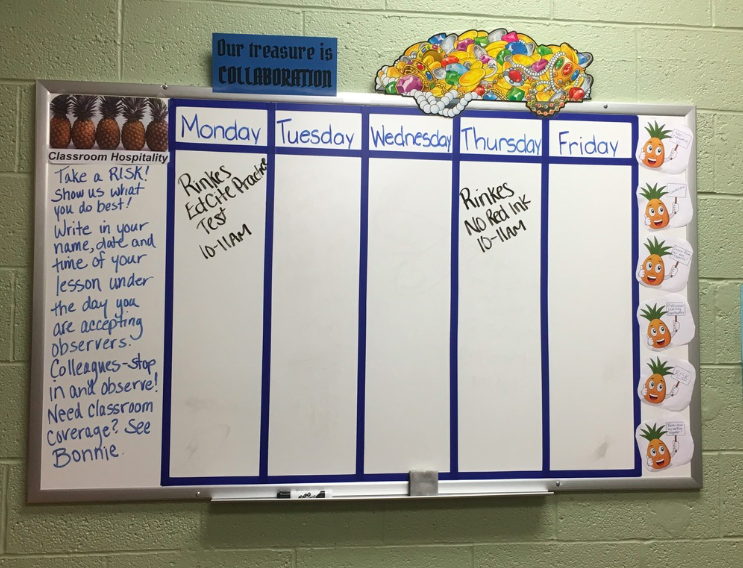 Our treasure is
COLLABORATION
Classroom Hospitality
Take a RISK!
Show us what
you do best!
Write in your
name, date and
time of your
lesson under
the day you
are accepting
observers.
Colleagues-stop
in and observe!
Need classroom
coverage? See
Bonnie.
Monday
Rinkes
EdCite Practice
Test
10-11AM
Tuesday
Wednesday
Thursday
Rinkes
NO Red Ink
10-11am
Friday